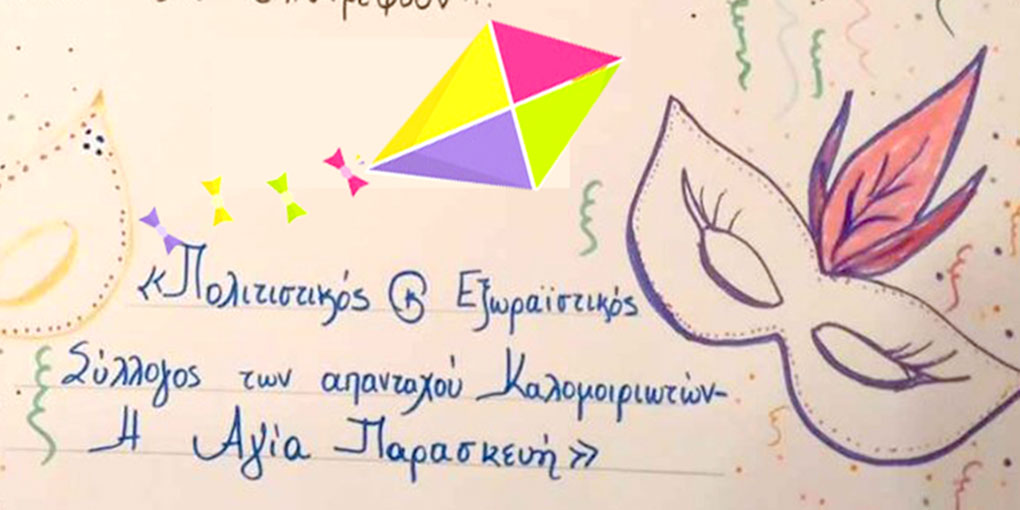 «Πολιτιστικός & Εξωραϊστικός
Σύλλογος των απανταχού Καλομοιριωτών-
Η Αγία Παρασκευή»